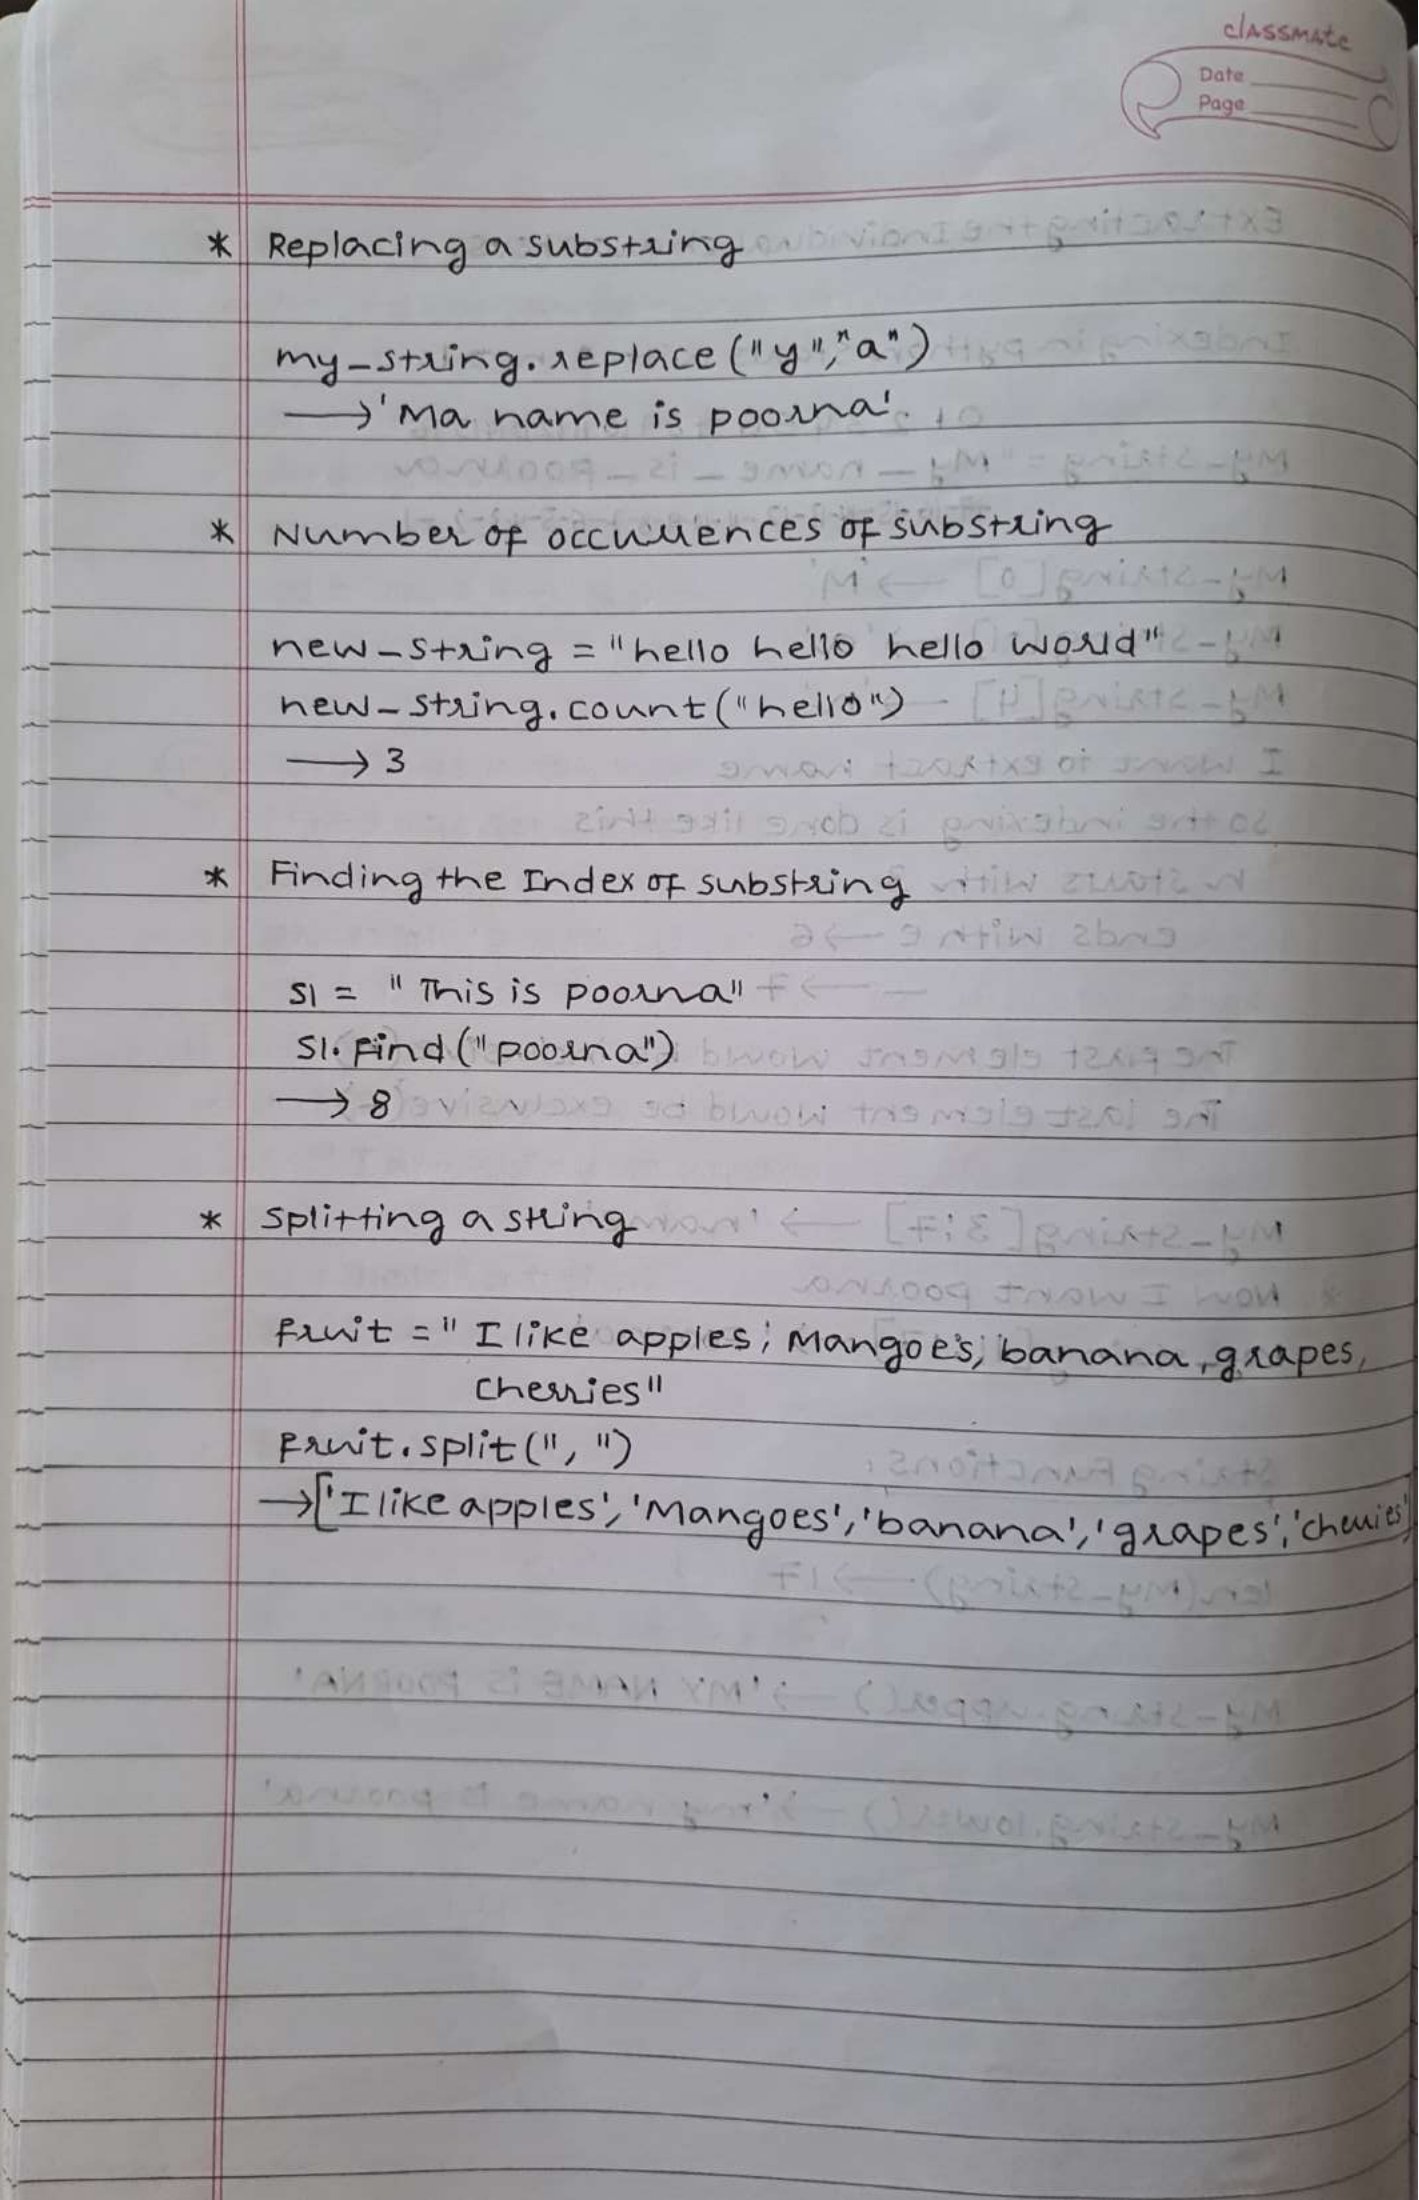 classmate
Date
Page
* Replacing a substring
my_string.replace("y","a")
→'Ma name is poorna'
* Number of occurrences of substring
new_string = "hello hello hello world"
new_string.count("hello")
→ 3
* Finding the Index of substring
s1 = "This is poorna"
s1.find("poorna")
→ 8
* Splitting a string
fruit = "I like apples, Mangoes, banana, grapes,
cherries"
fruit.split(", ")
→['I like apples', 'Mangoes', 'banana', 'grapes', 'cherries']